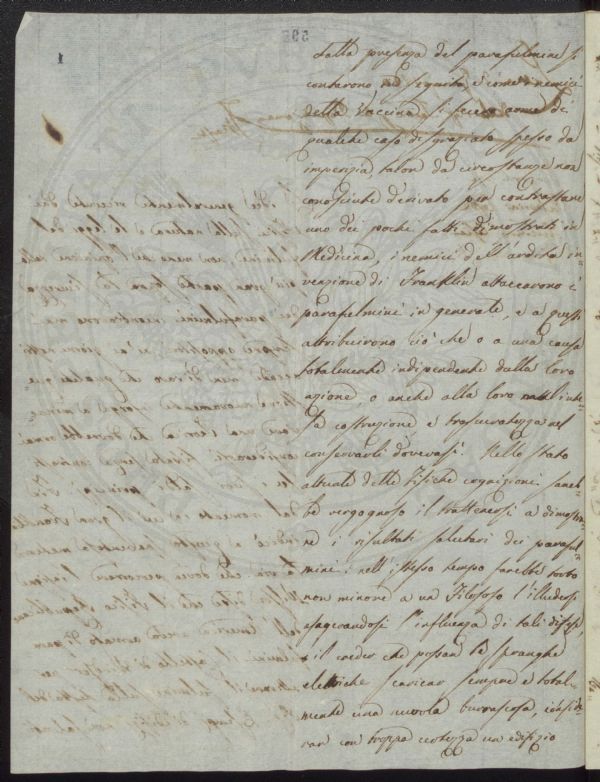 dalla presenza del parafulmine si
contarono in seguito, e come i nemici
della Vaccina si fecero arme di
qualche caso disgraziato spesso da
imperizia talor da circostanze non
conosciute derivato per contrastare
uno dei pochi fatti dimostrati in
Medicina, i nemici dell'ardita in-
venzione di Franklin attaccarono i
parafulmini in generale, e a questi
attribuirono ciò che o a una causa
totalmente indipendente dalla loro
azione, o anche alla loro mal inte-
sa costruzione e trascuratezza nel
conservarli dovevasi. Nello stato
attuale delle Fisiche cognizioni sareb-
be vergognoso il trattenersi a dimostra-
re i risultati salutari dei paraful-
mini: nell'istesso tempo sarebbe torto
non minore a un Filosofo l'illudersi
esagerandosi l'influenza di tali difese,
e il creder che possan le spranghe
elettriche scaricar sempre e total-
mente una nuvola burrascosa,
con troppa certezza un edifizio